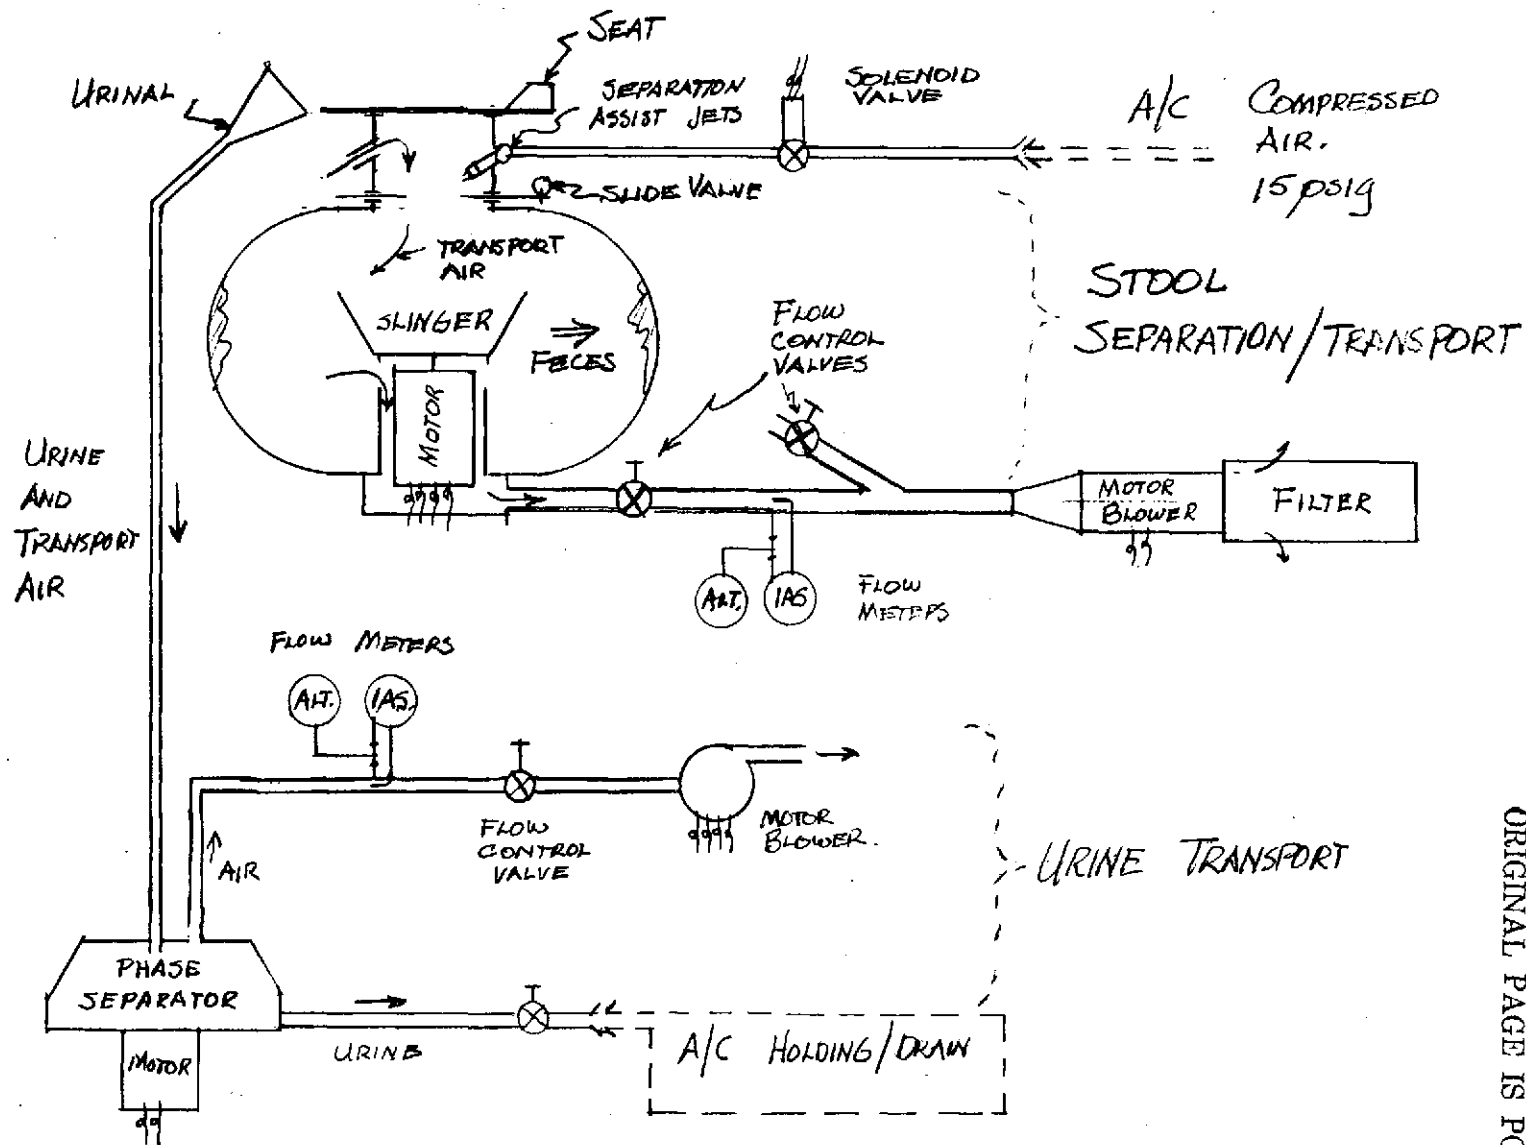 SEAT
URINAL
SEPARATION
ASSIST JETS
SOLENOID
VALVE
A/C COMPRESSED
AIR.
15 psig
SLIDE VALVE
TRANSPORT
AIR
SLINGER
FECES
MOTOR
FLOW
CONTROL
VALVES
STOOL
SEPARATION/TRANSPORT
URINE
AND
TRANSPORT
AIR
MOTOR
BLOWER
FILTER
ALT.
IAS
FLOW
METERS
FLOW METERS
ALT.
IAS.
AIR
FLOW
CONTROL
VALVE
MOTOR
BLOWER.
URINE TRANSPORT
PHASE
SEPARATOR
MOTOR
URINE
A/C HOLDING/DRAIN
ORIGINAL PAGE IS PO